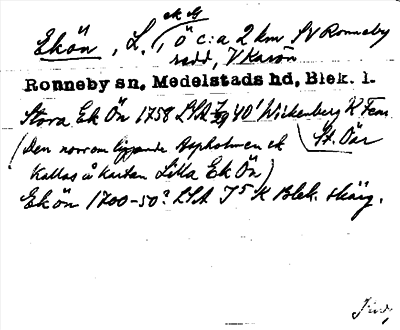 ek M
Ekön, L., Ö c:a 2 km SV Ronneby
redd, V Karön
Ronneby sn, Medelstads hd, Blek. l.
Stora Ek Ön 1758 LSA 40' Wirkenberg K Fem
(Den norr om liggande Aspholmen ek St. Öar
kallas å kartan Lilla Ek Ön)
Ekön 1700-50? LSA J5 K Blek. skärg.